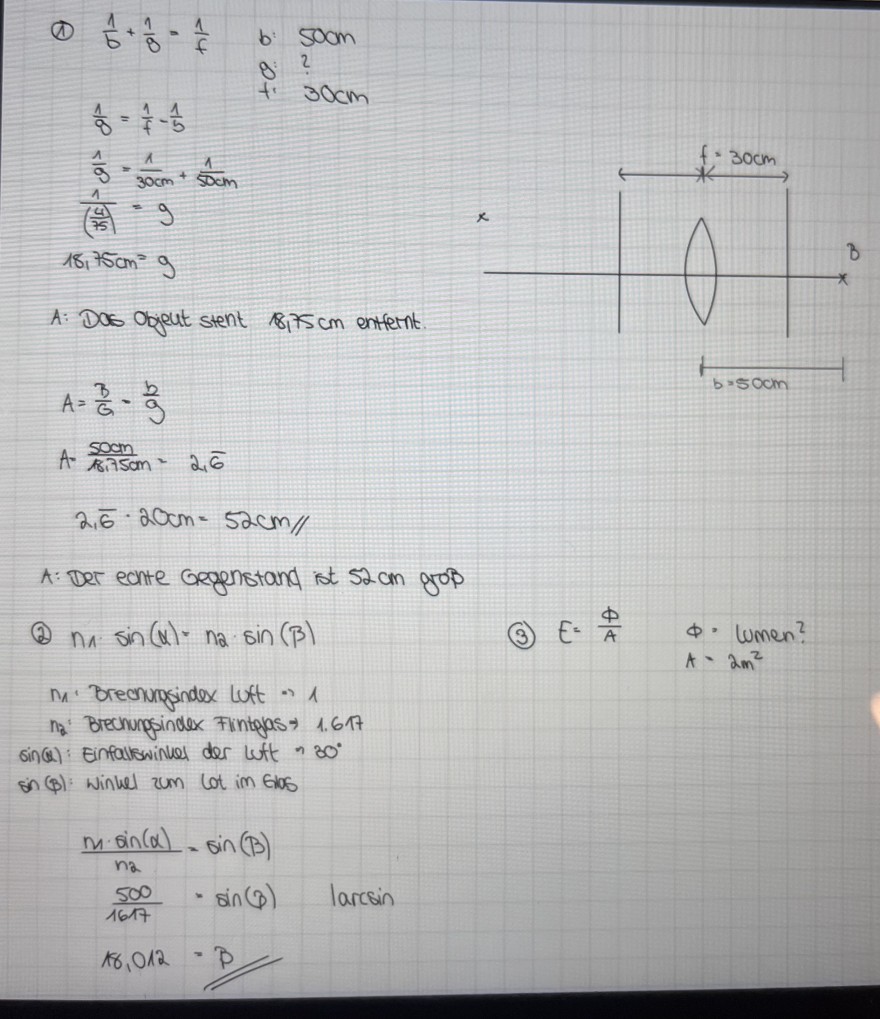 ① 1/b + 1/g = 1/f
b: 50cm
g: ?
f: 30cm
1/g = 1/f - 1/b
1/g = 1/30cm + 1/50cm
1/(4/75) = g
18,75cm = g
A: Das Objekt steht 18,75cm entfernt.
f = 30cm
x
B
x
b=50cm
A = B/G = b/g
A = 50cm/18,75cm = 2,6̅
2,6̅ · 20cm = 52cm//
A: Der echte Gegenstand ist 52cm groß
② n1 · sin(α) = n2 · sin(β)
n1: Brechungsindex Luft → 1
n2: Brechungsindex Flintglas → 1.617
sin(α): Einfallswinkel der Luft → 30°
sin(β): Winkel zum Lot im Glas
n1·sin(α)/n2 = sin(β)
500/1617 = sin(β) |arcsin
18,012 = β
③ E = Φ/A
Φ = lumen?
A = 2m²